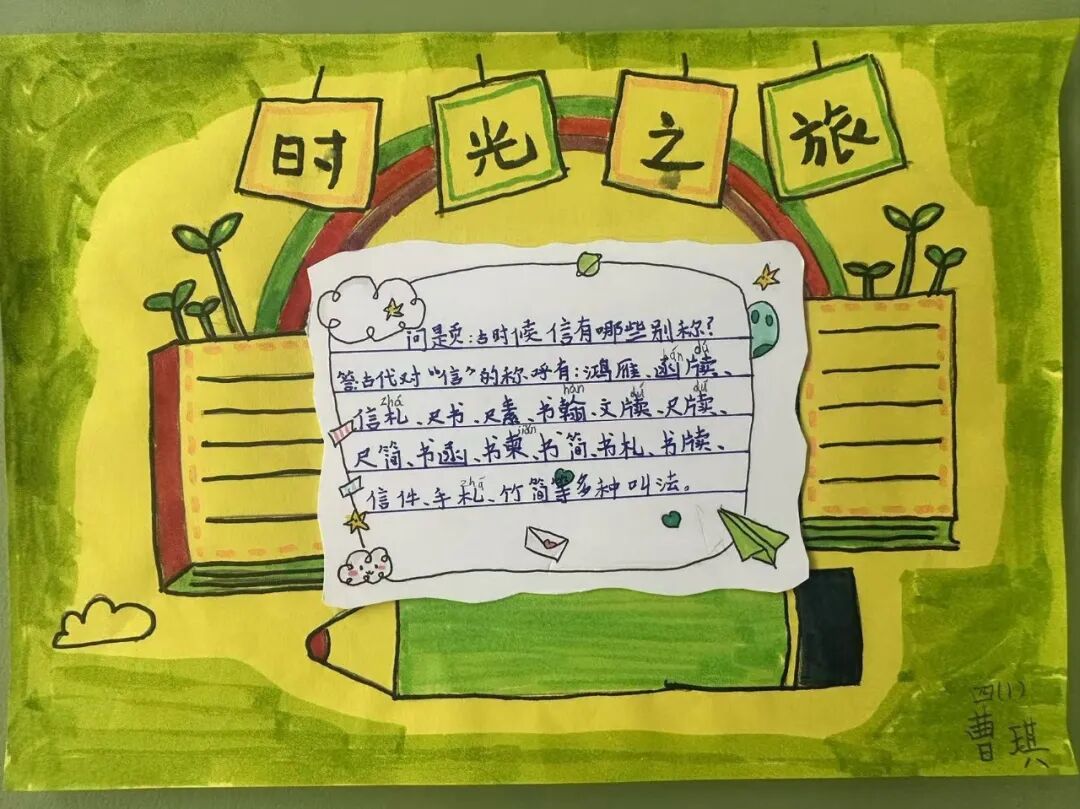 时光之旅
问题:古时候信有哪些别称?
答古代对“信”的称呼有:鸿雁、函牍、
hán dú
信札、尺书、尺素、书翰、文牍、尺牍、
zhá hàn dú dú
尺简、书函、书柬、书简、书札、书牍、
jiǎn
信件、手札、竹简等多种叫法。
zhá
四(1)
曹琪